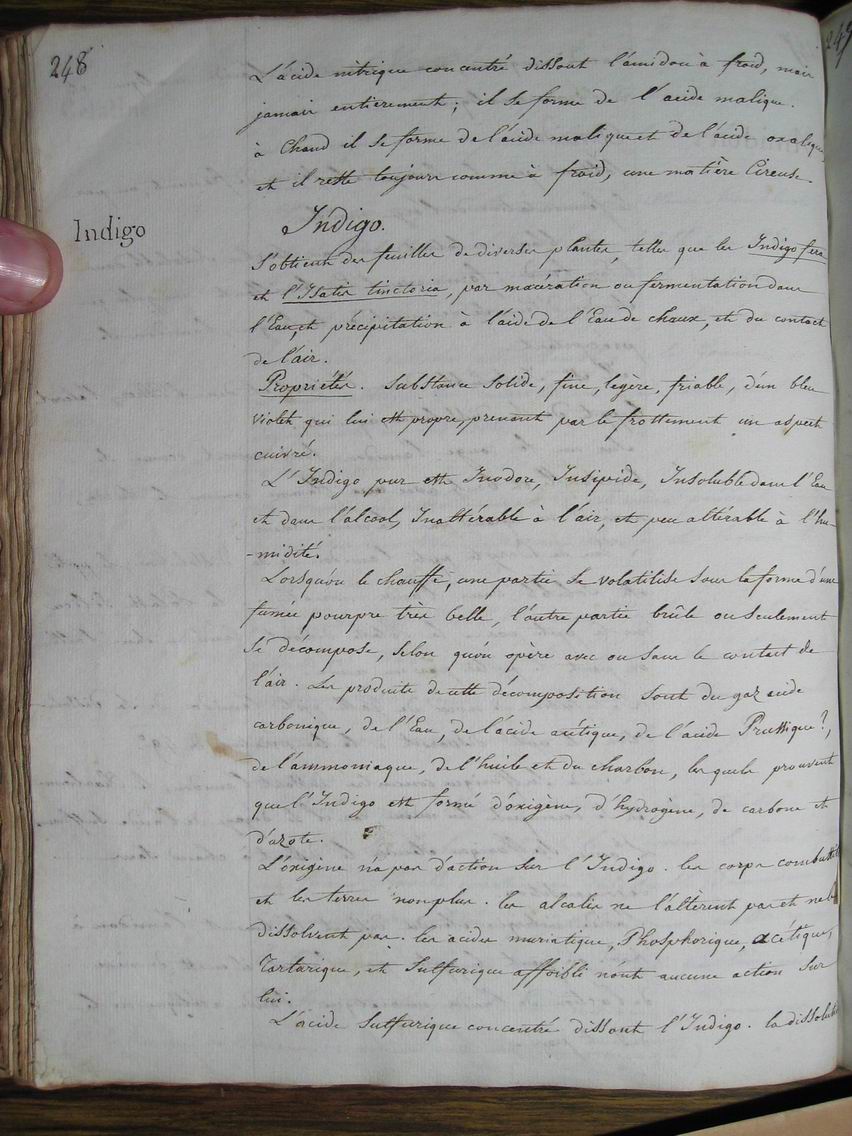 248
L'acide nitrique concentré dissout l'amidon à froid, mais
jamais entierement; il se forme de l'acide malique.
à chaud il se forme de l'acide malique et de l'acide oxalique,
et il reste toujours comme à froid, une matière Cireuse.
Indigo
Indigo.
S'obtient des feuilles de diverses plantes, telles que les Indigo fera
et l'Isatis tinctoria, par macération ou fermentation dans
l'Eau, et précipitation à l'aide de l'Eau de chaux, et du contact
de l'air.
Propriétés. Substance Solide, fine, legère, friable, d'un bleu
violet qui lui est propre, prenant par le frottement un aspect
cuivré.
L'Indigo pur est Inodore, Insipide, Insoluble dans l'Eau
et dans l'alcool, Inaltérable à l'air, et peu altérable à l'hu-
-midité.
Lorsqu'on le chauffe, une partie se volatilise sous la forme d'une
fumée pourpre très belle, l'autre partie brûle ou seulement
se décompose, selon qu'on opère avec ou sans le contact de
l'air. Les produits de cette décomposition sont du gaz acide
carbonique, de l'Eau, de l'acide acétique, de l'acide Prussique?,
de l'ammoniaque, de l'huile et du charbon, lesquels prouvent
que l'Indigo est formé d'oxigène, d'hydrogène, de carbone et
d'azote.
L'oxigène n'a pas d'action sur l'Indigo. les corps combustibl
et les terres non plus. les alcalis ne l'altèrent pas et ne le
dissolvent pas. les acides muriatique, Phosphorique, acétique,
Tartarique, et Sulfurique affoibli n'ont aucune action sur
lui.
L'acide Sulfurique concentré dissout l'Indigo. la dissolutio